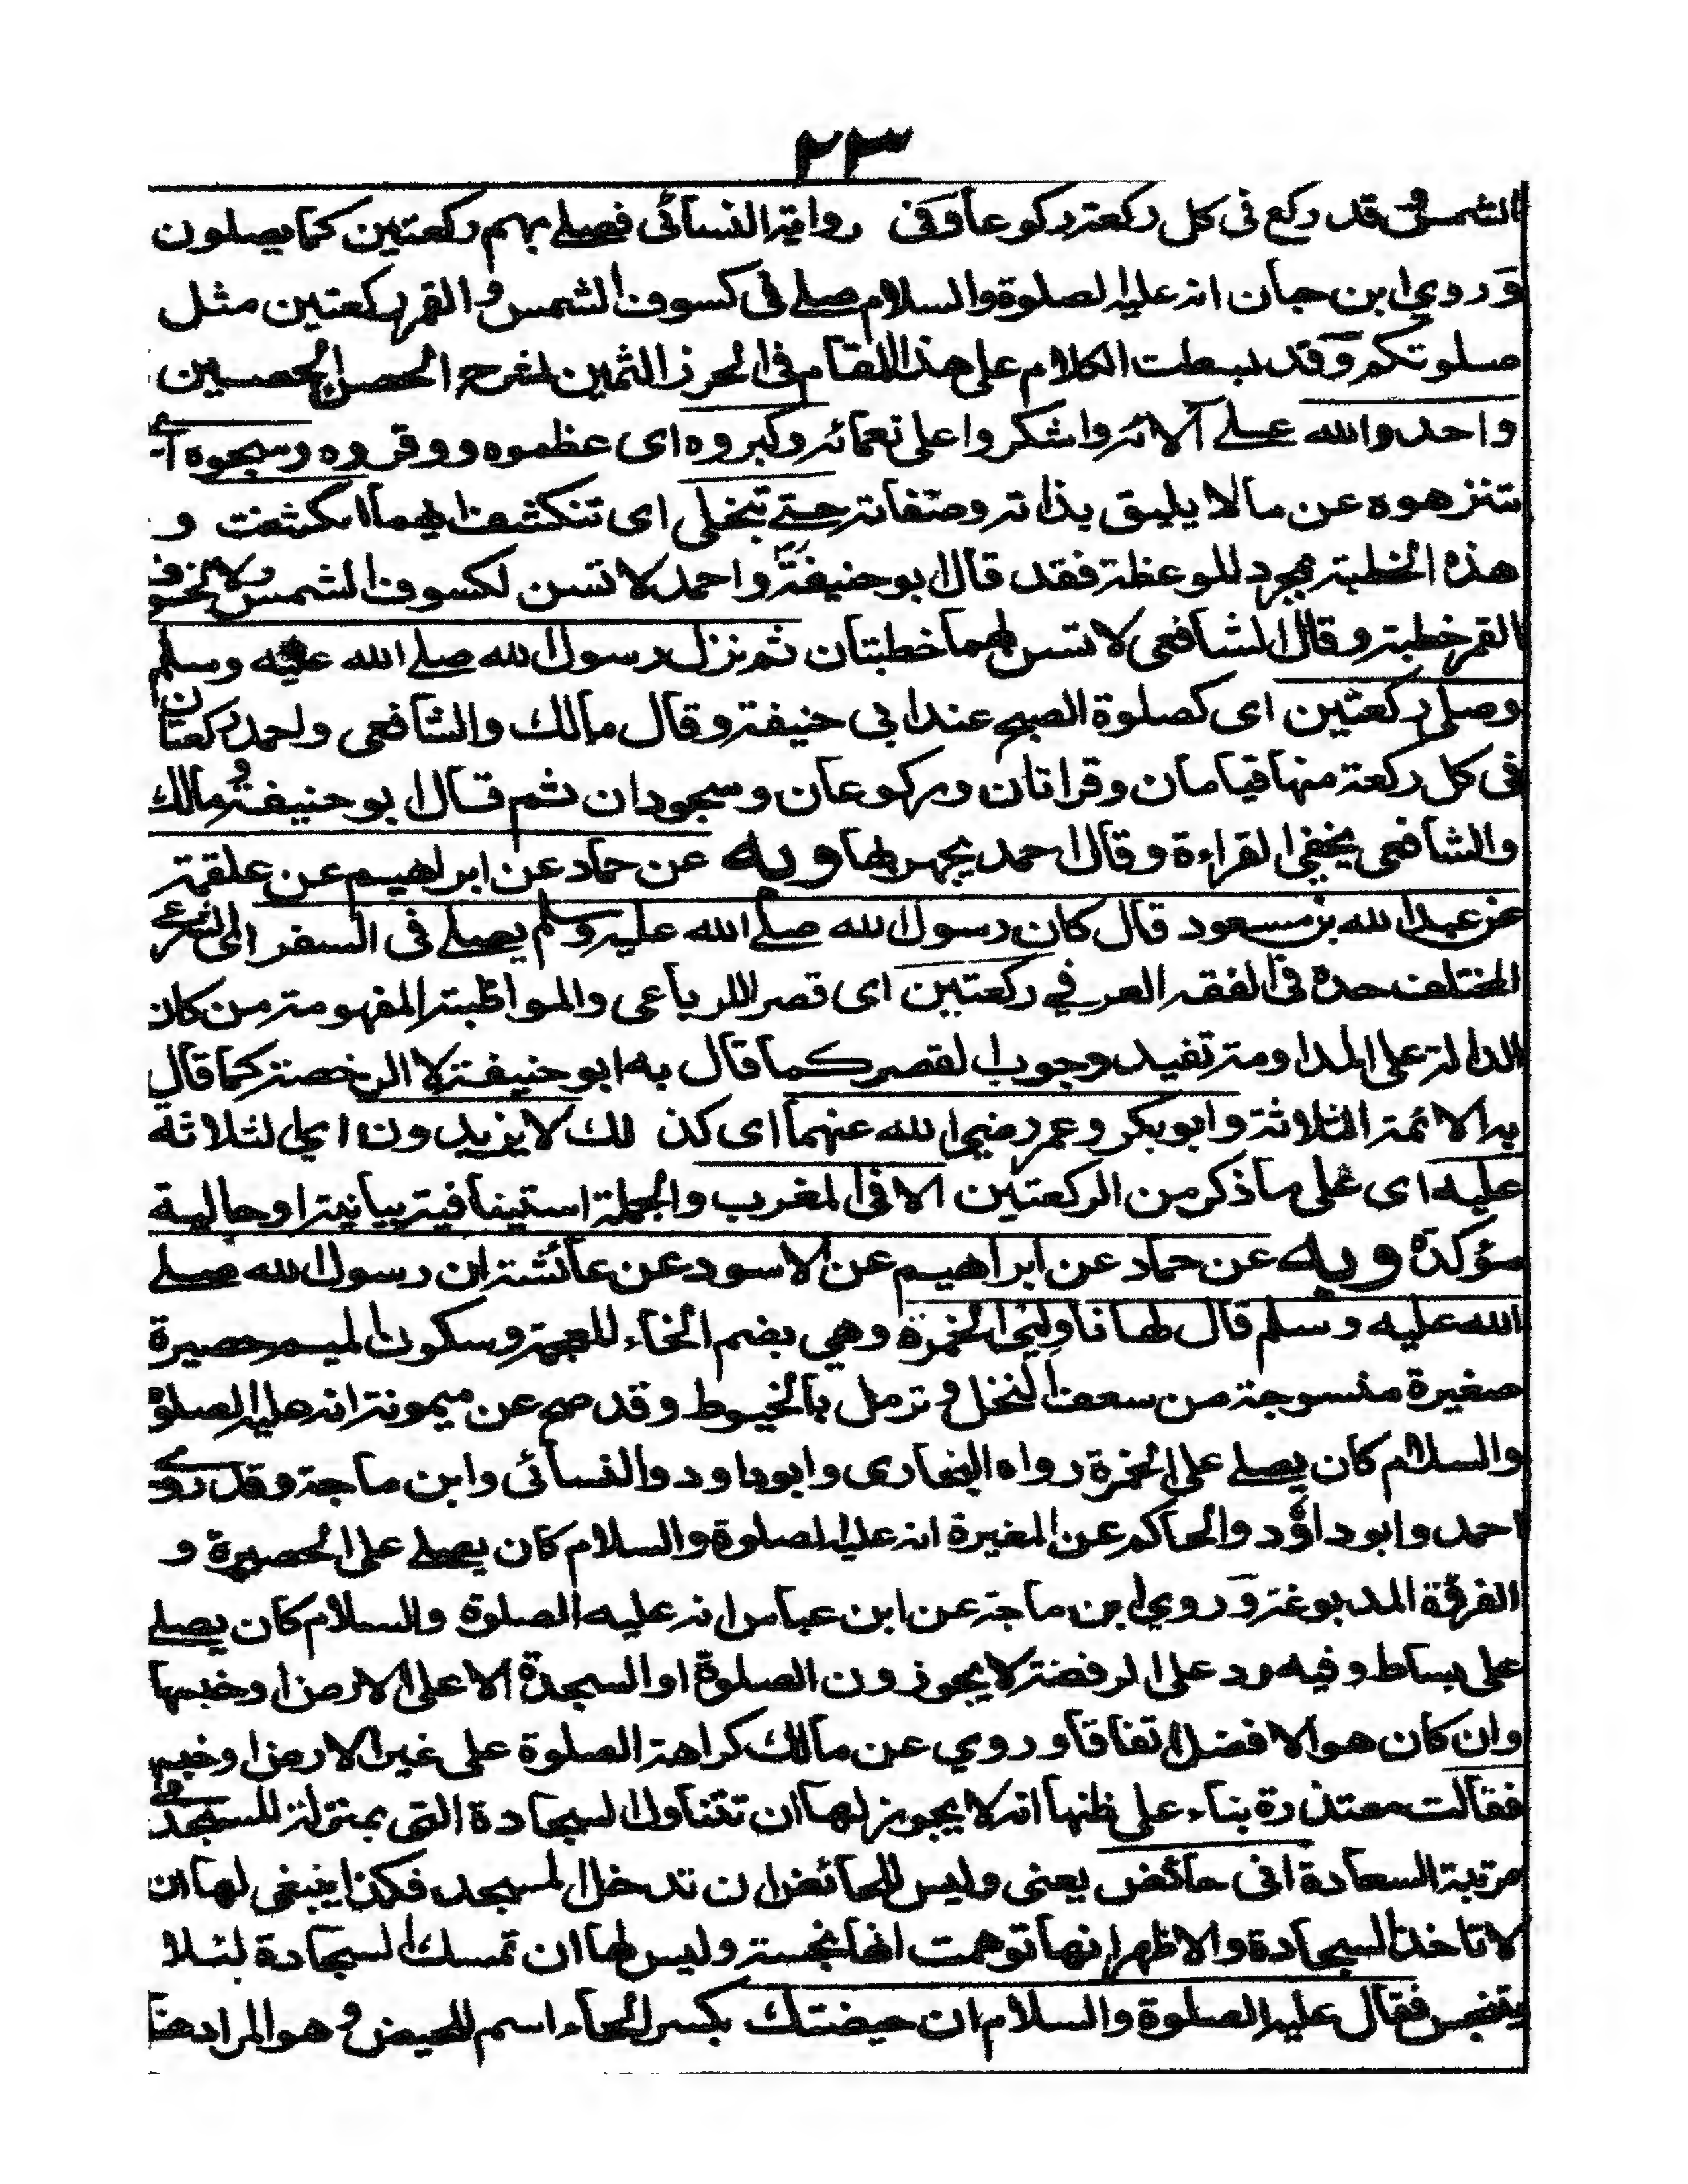 ٢٣
الشمس قد ركع فى كل ركعة ركوعا وفى رواية النسائى فصلے بهم ركعتين كما يصلون
وروي ابن حبان انه عليه الصلوة والسلام صلے فى كسوف الشمس والقمر ركعتين مثل
صلوتكم وقد بسطت الكلام على هذا المقام فى الحرز الثمين لشرح الحصن الحصين
واحدوا الله علے آلائه واشكروا على نعمائه وكبروه اى عظموه ووقروه وسبحوه اى
تنزهوه عن ما لا يليق بذاته وصفاته حتے تنجلى اى تنكشف ايهما انكشفت و
هذه الخطبة مجرد للموعظة فقد قال ابو حنيفة واحمد لا تسن لكسوف الشمس ولا لخسوف
القمر خطبة وقال الشافعى لا تسن لهما خطبتان ثم نزل رسول الله صلے الله عليه وسلم
وصلى ركعتين اى كصلوة الصبح عند ابى حنيفة وقال مالك والشافعى واحمد ركعتان
فى كل ركعة منها قيامان وقراتان وركوعان وسجودان ثم قال ابو حنيفة ومالك
والشافعى يخفى القراءة وقال احمد يجهر بها وبه عن حماد عن ابراهيم عن علقمة
عن عبد الله بن مسعود قال كان رسول الله صلے الله عليه وسلم يصلے فى السفر اى الشرعى
المختلف حده فى الفقه العرفي ركعتين اى قصرا للرباعى والمواظبة المفهومة من كان
الدالة على المداومة تفيد وجوب القصر كما قال به ابو حنيفة لا الرخصة كما قال
به الائمة الثلاثة وابو بكر وعمر رضى الله عنهما اى كذلك لا يزيدون اي الثلاثة
عليه اى على ما ذكر من الركعتين الا فى المغرب والجملة استينافية بيانية او حالية
مؤكدة وبه عن حماد عن ابراهيم عن الاسود عن عائشة ان رسول الله صلے
الله عليه وسلم قال لها ناولينى الخمرة وهي بضم الخاء المعجمة وسكون الميم حصيرة
صغيرة منسوجة من سعف النخل وترمل بالخيوط وقد صح عن ميمونة انه عليه الصلوة
والسلام كان يصلے على الخمرة رواه البخارى وابو داود والنسائى وابن ماجة وقد روى
احمد وابو داؤد والحاكم عن المغيرة انه عليه الصلوة والسلام كان يصلے على الحصيرة و
الفروة المدبوغة وروي ابن ماجة عن ابن عباس انه عليه الصلوة والسلام كان يصلے
على بساط وفيه رد على الرفضة لا يجوزون الصلوة او السجدة الا على الارض او خبسها
وان كان هو الافضل اتفاقا وروي عن مالك كراهة الصلوة على غير الارض او
فقالت معتذرة بناء على ظنها انه لا يجوز لها ان تتناول السجادة التى بمنزلة المسجد فى
مرتبة السعادة انى حائض يعنى وليس للحائض ان تدخل المسجد فكذا ينبغى لها ان
لا تاخذ السجادة والاظهر انها توهمت انها نجسة وليس لها ان تمسك السجادة لئلا
يتنجس فقال عليه الصلوة والسلام ان حيضتك بكسر الحاء اسم للحيض وهو المراد هنا